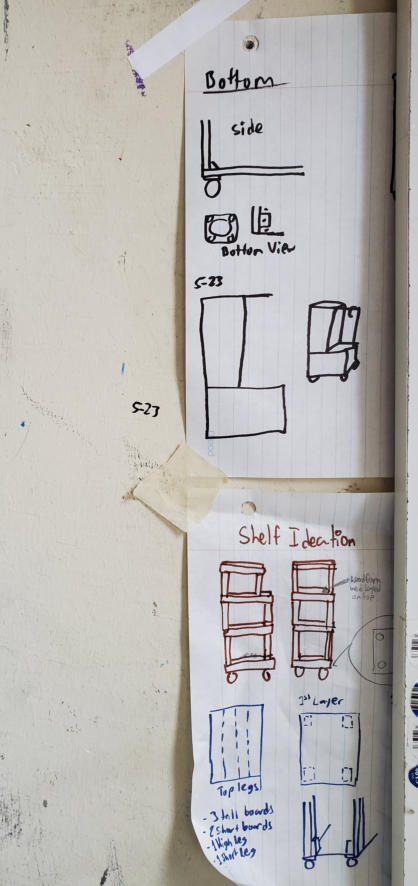 Bottom
side
Bottom View
5-23
5-23
Shelf Ideation
on top
1st Layer
Top legs
- 3 tall boards
- 2 short boards
- 1 High leg
- 1 short leg